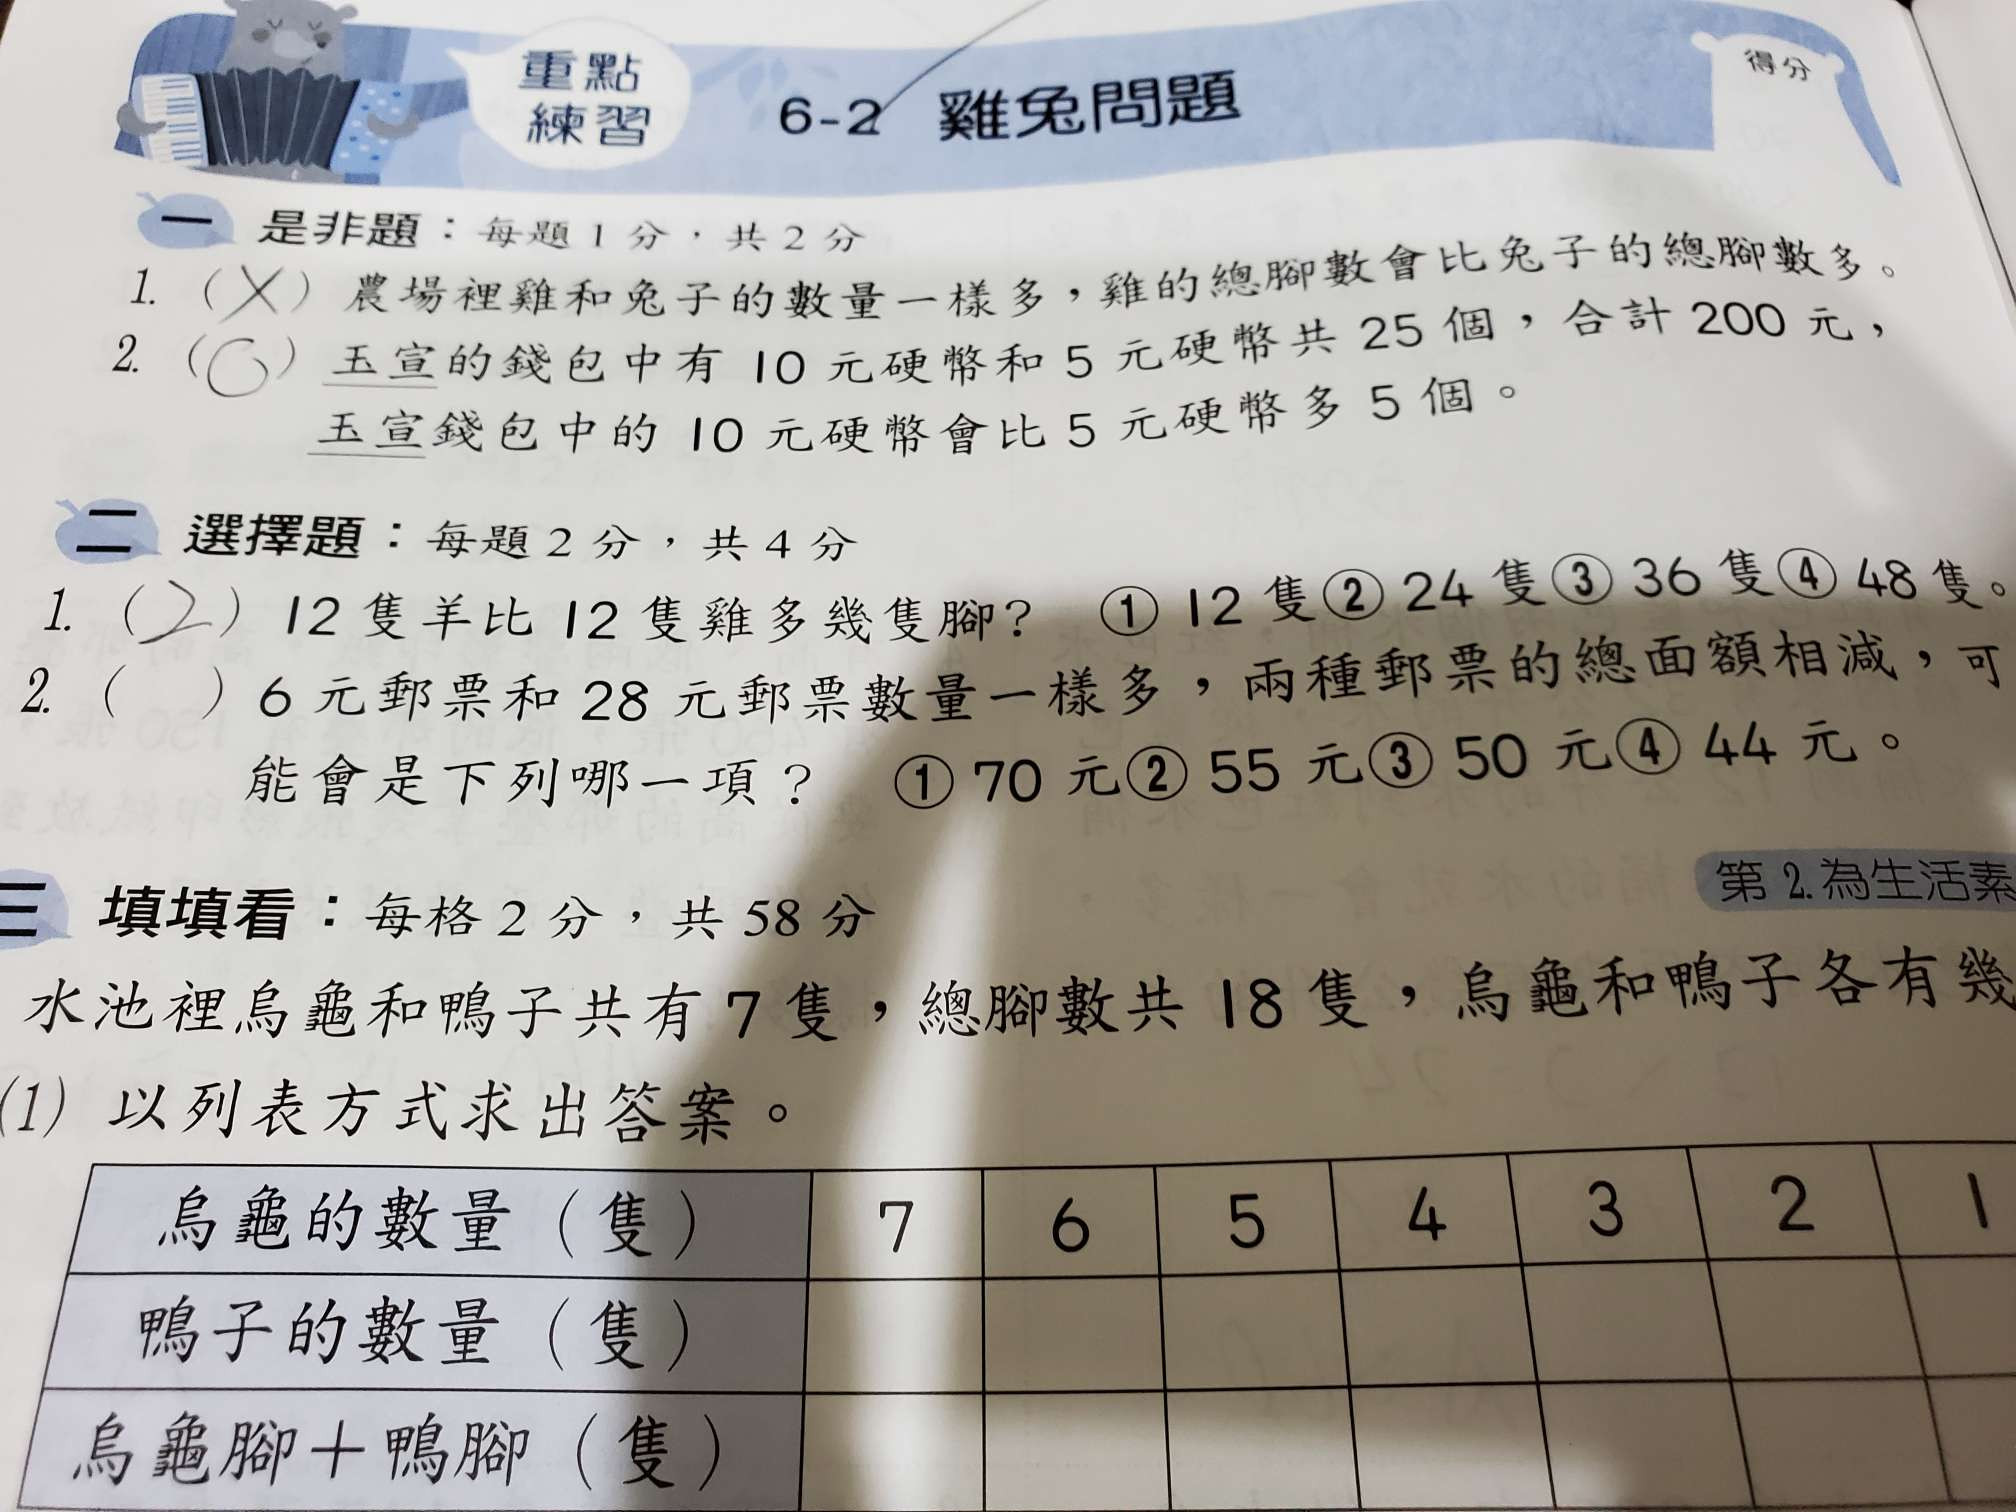 重點
練習
6-2 雞兔問題
得分
一 是非題：每題1分，共2分
1.（×）農場裡雞和兔子的數量一樣多，雞的總腳數會比兔子的總腳數多。
2.（○）玉宣的錢包中有10元硬幣和5元硬幣共25個，合計200元，
玉宣錢包中的10元硬幣會比5元硬幣多5個。
二 選擇題：每題2分，共4分
1.（2）12隻羊比12隻雞多幾隻腳？ ①12隻②24隻③36隻④48隻。
2.（ ）6元郵票和28元郵票數量一樣多，兩種郵票的總面額相減，可
能會是下列哪一項？ ①70元②55元③50元④44元。
第2.為生活素
三 填填看：每格2分，共58分
水池裡烏龜和鴨子共有7隻，總腳數共18隻，烏龜和鴨子各有幾
(1) 以列表方式求出答案。
烏龜的數量（隻） 7 6 5 4 3 2 1
鴨子的數量（隻）
烏龜腳＋鴨腳（隻）